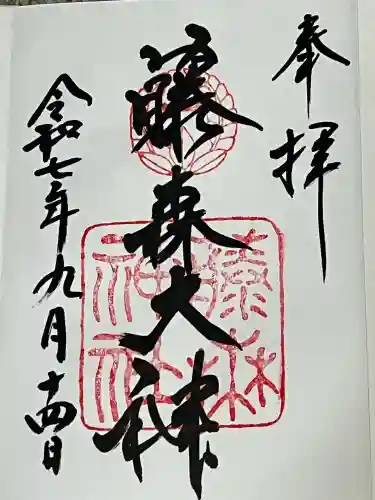 奉拝
藤森大神
藤森
神社
令和七年九月十四日